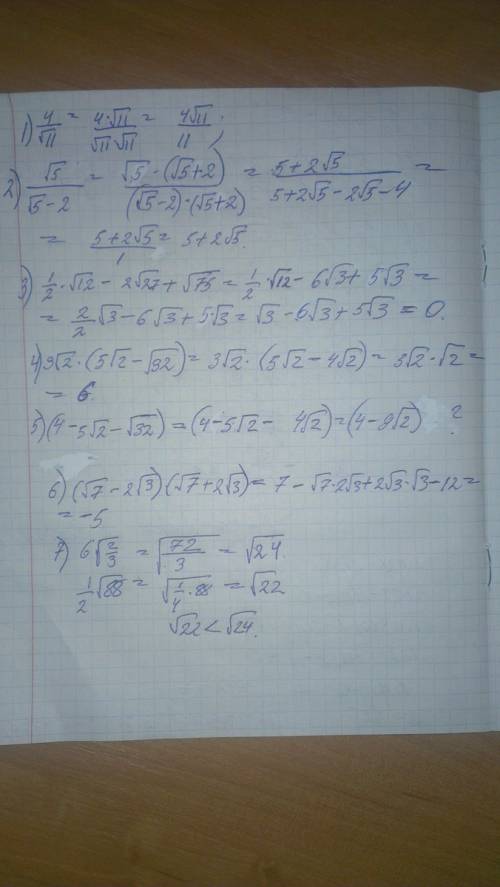 1) 4/√11 = 4·√11/√11·√11 = 4√11/11;
2) √5/√5-2 = √5·(√5+2)/(√5-2)·(√5+2) = 5+2√5/5+2√5-2√5-4 =
= 5+2√5/1 = 5+2√5.
3) 1/2·√12 - 2√27 + √75 = 1/2·√12 - 6√3 + 5√3 =
= 2/2√3 - 6√3 + 5√3 = √3 - 6√3 + 5√3 = 0.
4) 3√2·(5√2-√32) = 3√2·(5√2-4√2) = 3√2·√2 =
= 6
5) (4-5√2-√32) = (4-5√2- 4√2) = (4-9√2) ?
6) (√7-2√3)(√7+2√3) = 7-√7·2√3+2√3·√3-12 =
= -5
7) 6√2/3 = √72/3 = √24.
1/2√88 = √1/4·88 = √22
√22 < √24.